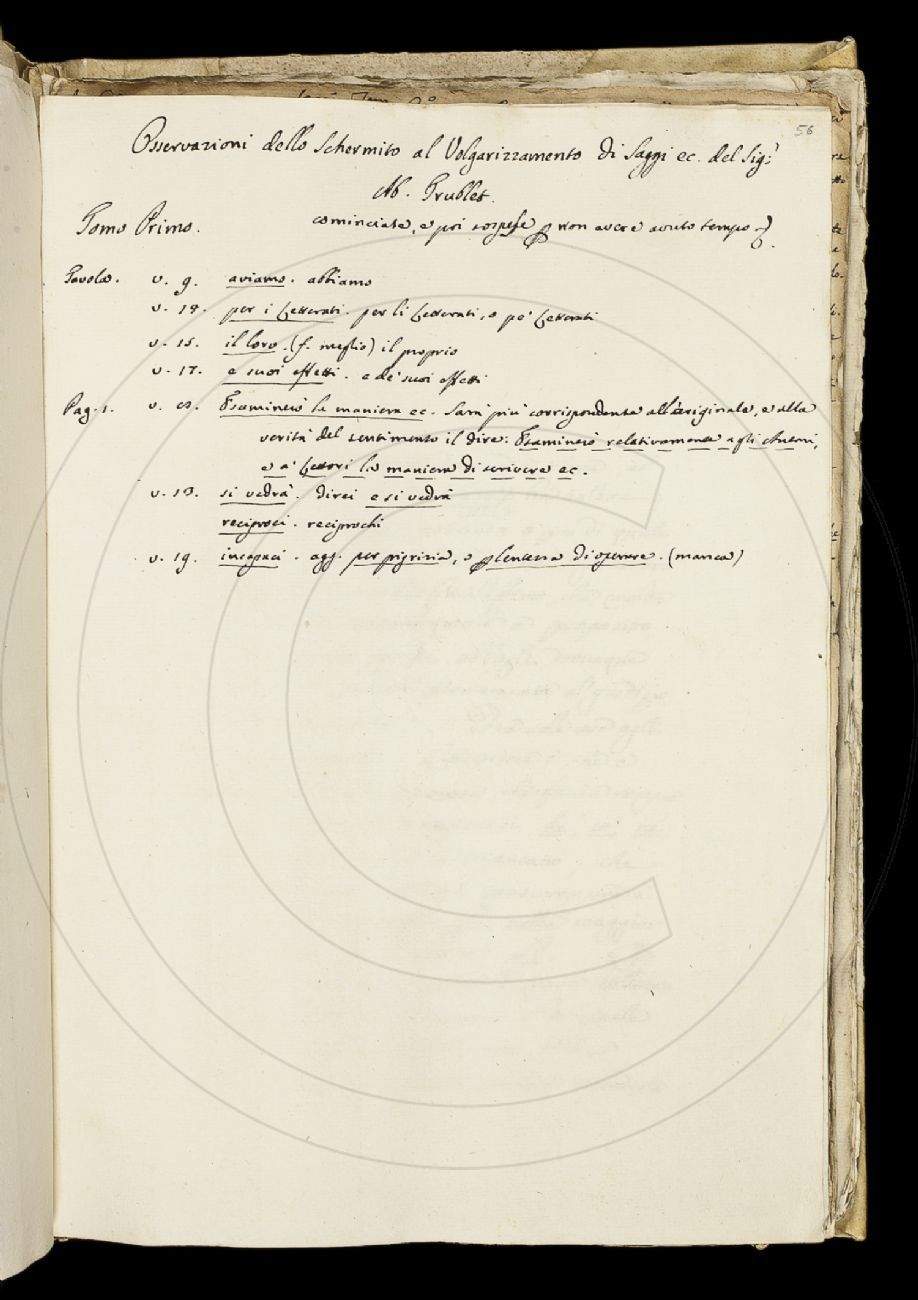 56
Osservazioni dello Schermito al Volgarizzamento di Saggi ec. del Sig.r
Ab. Trublet.
Tomo Primo. cominciate, e poi sospese p non avere avuto tempo
Tavola. v. 9. aviamo. abbiamo
v. 14. per i Letterati. per li Letterati, o pe' Letterati
v. 15. il loro. (f. meglio) il proprio
v. 17. e suoi effetti. e de' suoi effetti
Pag. 1. v. Esaminerò la maniera ec. Sarà più corrispondente all'originale, e alla
verità del sentimento il dire: Esaminerò relativamente agli Autori,
e a' Lettori la maniera di scrivere ec.
v. 13. si vedrà. direi e si vedrà
reciproci. reciprochi
v. 19. incapaci. agg. per pigrizia, o p lentezza di operare. (manca)